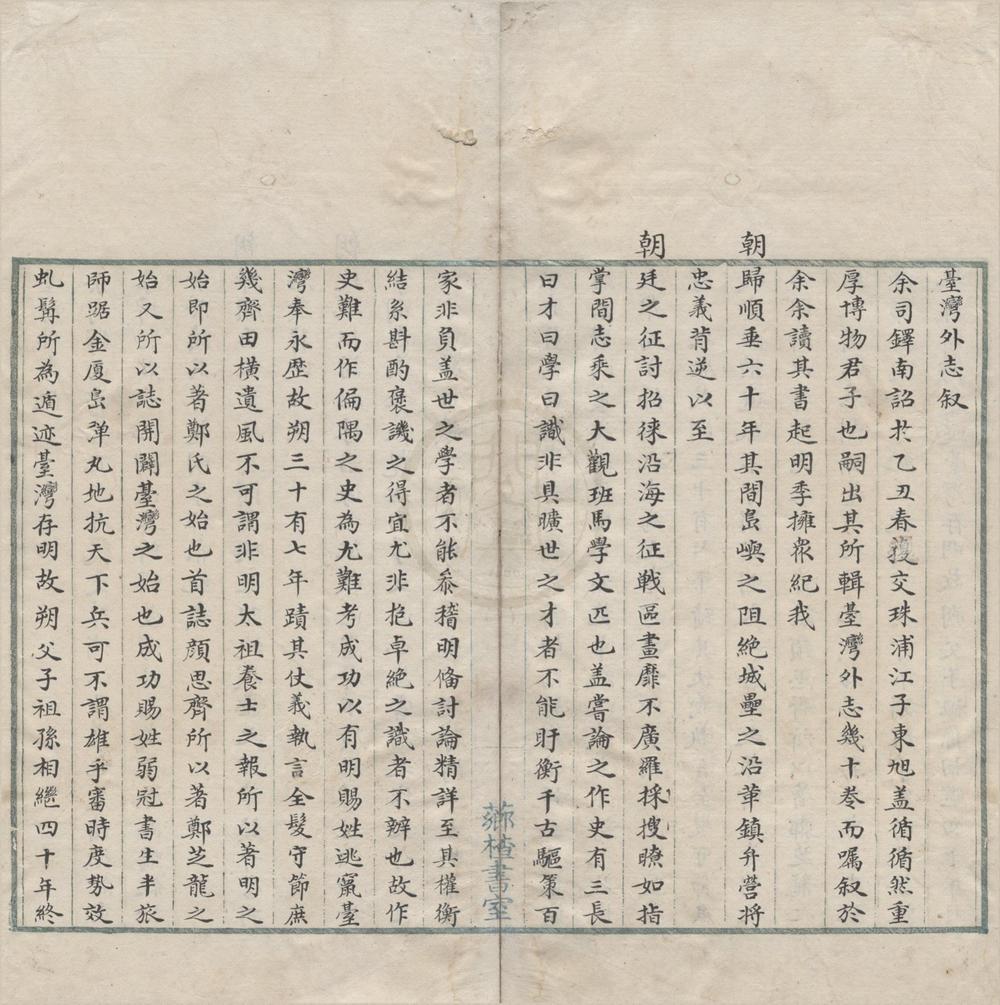 臺灣外志叙
余司鐸南詔扵乙丑春獲交珠浦江子東旭盖循循然重
厚博物君子也嗣出其所輯臺灣外志幾十卷而嘱叙於
余余讀其書起明季擁眾紀我
朝歸順垂六十年其間島嶼之阻絶城壘之沿革鎮弁營將
忠義背逆以至
朝廷之征討招徠沿海之征戰區畫靡不廣羅採搜瞭如指
掌間志乘之大觀班馬學文匹也盖嘗論之作史有三長
曰才曰學曰識非具曠世之才者不能盱衡千古驅策百
家非負盖世之學者不能叅稽明俻討論精詳至具權衡
結糸斟酌褒譏之得宜尤非抱卓絶之識者不辦也故作
史難而作偏隅之史為尤難考成功以有明賜姓逃竄臺
灣奉永歷故朔三十有七年蹟其仗義執言全髮守節庶
幾齊田橫遺風不可謂非明太祖養士之報所以著明之
始即所以著鄭氏之始也首誌顔思齊所以著鄭芝龍之
始又所以誌開闢臺灣之始也成功賜姓弱冠書生半旅
師踞金厦島弹丸地抗天下兵可不謂雄乎審時度勢效
虬髯所為遁迹臺灣存明故朔父子祖孫相繼四十年終
薌楂書室